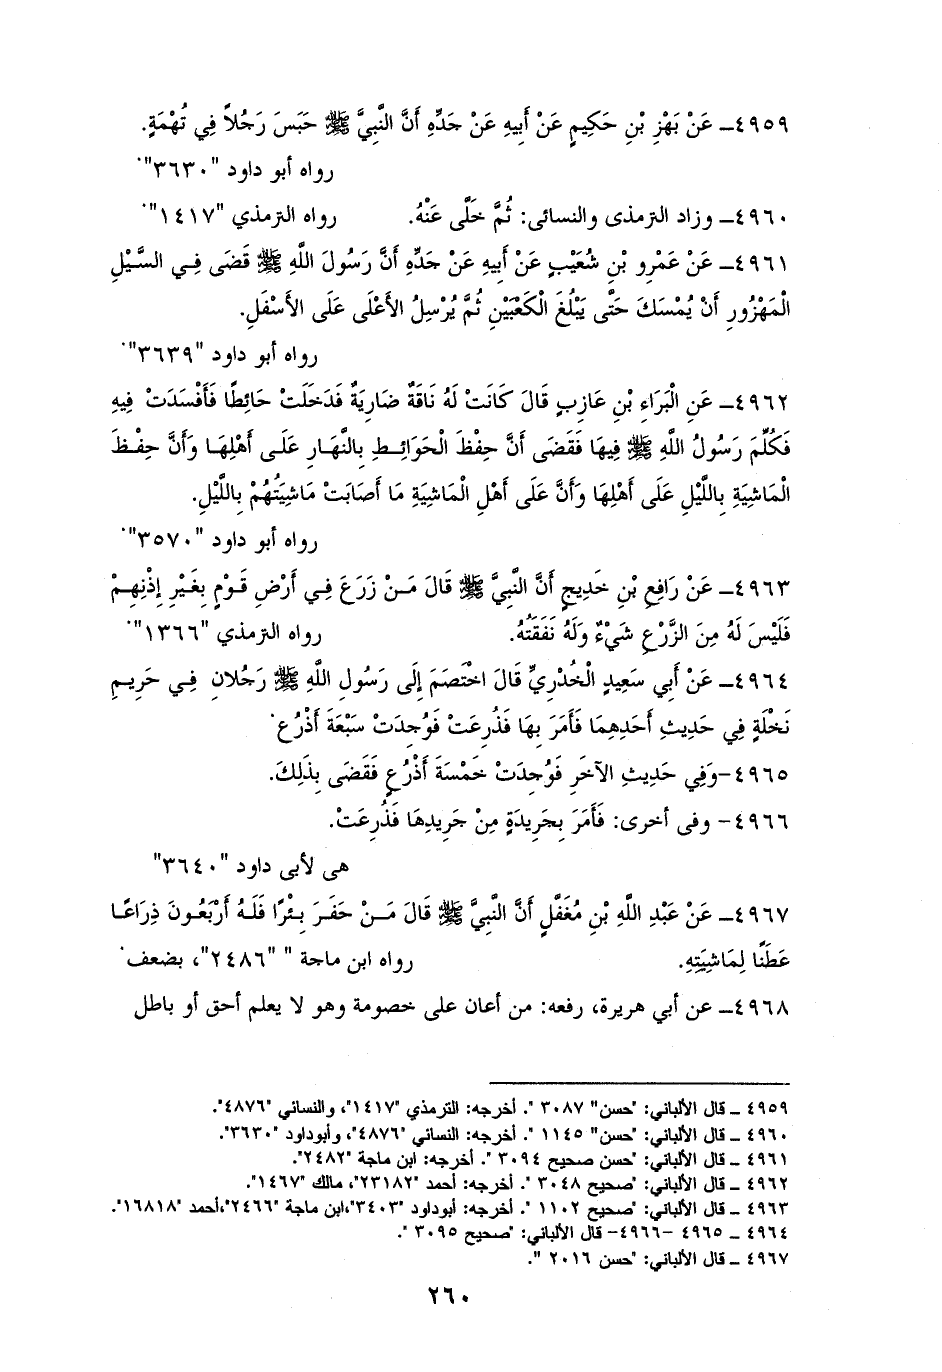 ٤٩٥٩ـ عَنْ بَهْزِ بْنِ حَكِيمٍ عَنْ أَبِيهِ عَنْ جَدِّهِ أَنَّ النَّبِيَّ ﷺ حَبَسَ رَجُلاً فِي تُهْمَةٍ.
رواه أبو داود "٣٦٣٠".
٤٩٦٠ـ وزاد الترمذى والنسائى: ثُمَّ خَلَّى عَنْهُ. رواه الترمذي "١٤١٧".
٤٩٦١ـ عَنْ عَمْرِو بْنِ شُعَيْبٍ عَنْ أَبِيهِ عَنْ جَدِّهِ أَنَّ رَسُولَ اللَّهِ ﷺ قَضَى فِـي السَّـيْلِ
الْمَهْزُورِ أَنْ يُمْسَكَ حَتَّى يَبْلُغَ الْكَعْبَيْنِ ثُمَّ يُرْسِلُ الأَعْلَى عَلَى الأَسْفَلِ.
رواه أبو داود "٣٦٣٩".
٤٩٦٢ـ عَنِ الْبَرَاءِ بْنِ عَازِبٍ قَالَ كَانَتْ لَهُ نَاقَةٌ ضَارِيَةٌ فَدَخَلَتْ حَائِطًا فَأَفْسَدَتْ فِيهِ
فَكُلِّمَ رَسُولُ اللَّهِ ﷺ فِيهَا فَقَضَى أَنَّ حِفْظَ الْحَوَائِـطِ بِالنَّهَارِ عَلَـى أَهْلِهَـا وَأَنَّ حِفْـظَ
الْمَاشِيَةِ بِاللَّيْلِ عَلَى أَهْلِهَا وَأَنَّ عَلَى أَهْلِ الْمَاشِيَةِ مَا أَصَابَتْ مَاشِيَتُهُمْ بِاللَّيْلِ.
رواه أبو داود "٣٥٧٠".
٤٩٦٣ـ عَنْ رَافِعِ بْنِ خَدِيجٍ أَنَّ النَّبِيَّ ﷺ قَالَ مَـنْ زَرَعَ فِـي أَرْضِ قَـوْمٍ بِغَيْرِ إِذْنِهِـمْ
فَلَيْسَ لَهُ مِنَ الزَّرْعِ شَيْءٌ وَلَهُ نَفَقَتُهُ. رواه الترمذي "١٣٦٦".
٤٩٦٤ـ عَنْ أَبِي سَعِيدٍ الْخُدْرِيِّ قَالَ اخْتَصَمَ إِلَى رَسُولِ اللَّهِ ﷺ رَجُلانِ فِـي حَرِيـمِ
نَخْلَةٍ فِي حَدِيثِ أَحَدِهِمَا فَأَمَرَ بِهَا فَذُرِعَتْ فَوُجِدَتْ سَبْعَةَ أَذْرُعٍ.
٤٩٦٥-وَفِي حَدِيثِ الآخَرِ فَوُجِدَتْ خَمْسَةَ أَذْرُعٍ فَقَضَى بِذَلِكَ.
٤٩٦٦- وفى أخرى: فَأَمَرَ بِجَرِيدَةٍ مِنْ جَرِيدِهَا فَذُرِعَتْ.
هى لأبى داود "٣٦٤٠"
٤٩٦٧ـ عَنْ عَبْدِ اللَّهِ بْنِ مُغَفَّلٍ أَنَّ النَّبِيَّ ﷺ قَالَ مَـنْ حَفَرَ بِـئْرًا فَلَـهُ أَرْبَعُـونَ ذِرَاعًـا
عَطَنًا لِمَاشِيَتِهِ. رواه ابن ماجة " "٢٤٨٦"، بضعف.
٤٩٦٨ـ عن أبي هريرة، رفعه: من أعان على خصومة وهو لا يعلم أحق أو باطل
٤٩٥٩ ـ قال الألباني: "حسن" ٣٠٨٧ ". أخرجه: الترمذي "١٤١٧"، والنسائي "٤٨٧٦".
٤٩٦٠ ـ قال الألباني: "حسن" ١١٤٥ ". أخرجه: النسائي "٤٨٧٦"، وأبوداود "٣٦٣٠".
٤٩٦١ ـ قال الألباني: "حسن صحيح ٣٠٩٤ ". أخرجه: ابن ماجة "٢٤٨٢".
٤٩٦٢ ـ قال الألباني: "صحيح ٣٠٤٨ ". أخرجه: أحمد "٢٣١٨٢"، مالك "١٤٦٧".
٤٩٦٣ ـ قال الألباني: "صحيح ١١٠٢ ". أخرجه: أبوداود "٣٤٠٣"،ابن ماجة "٢٤٦٦"،أحمد "١٦٨١٨".
٤٩٦٤ ـ ٤٩٦٥ -٤٩٦٦- قال الألباني: "صحيح ٣٠٩٥ ".
٤٩٦٧ ـ قال الألباني: "حسن ٢٠١٦ ".
٢٦٠